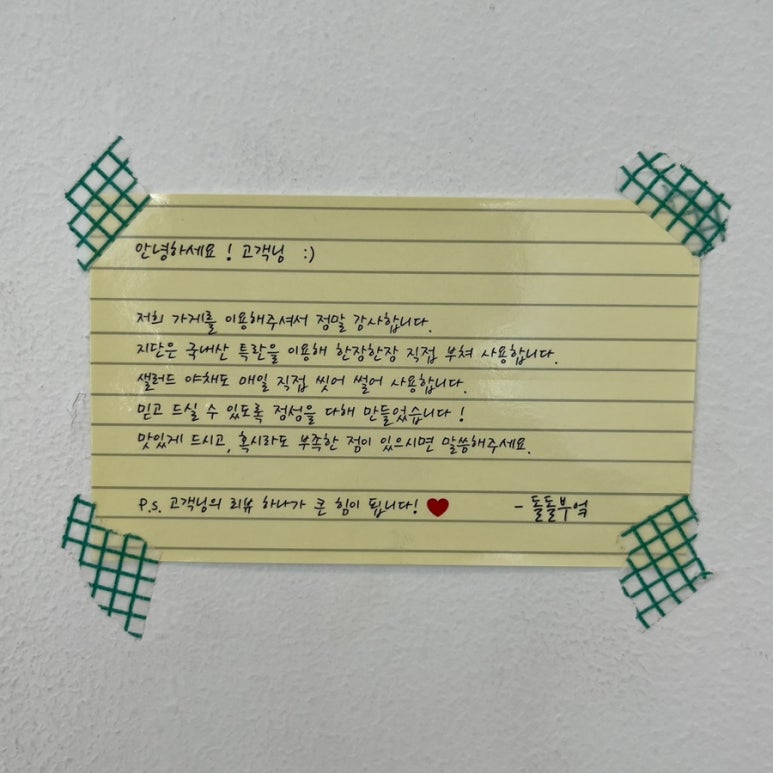 안녕하세요! 고객님 :)
저희 가게를 이용해주셔서 정말 감사합니다.
지단은 국내산 특란을 이용해 한장한장 직접 부쳐 사용합니다.
샐러드 야채도 매일 직접 씻어 썰어 사용합니다.
믿고 드실 수 있도록 정성을 다해 만들었습니다!
맛있게 드시고, 혹시라도 부족한 점이 있으시면 말씀해주세요.
P.S. 고객님의 리뷰 하나가 큰 힘이 됩니다! ❤ - 돌돌부엌